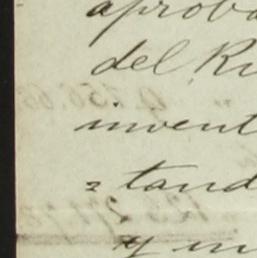 aproba
del Ri
invent
= tand
y in